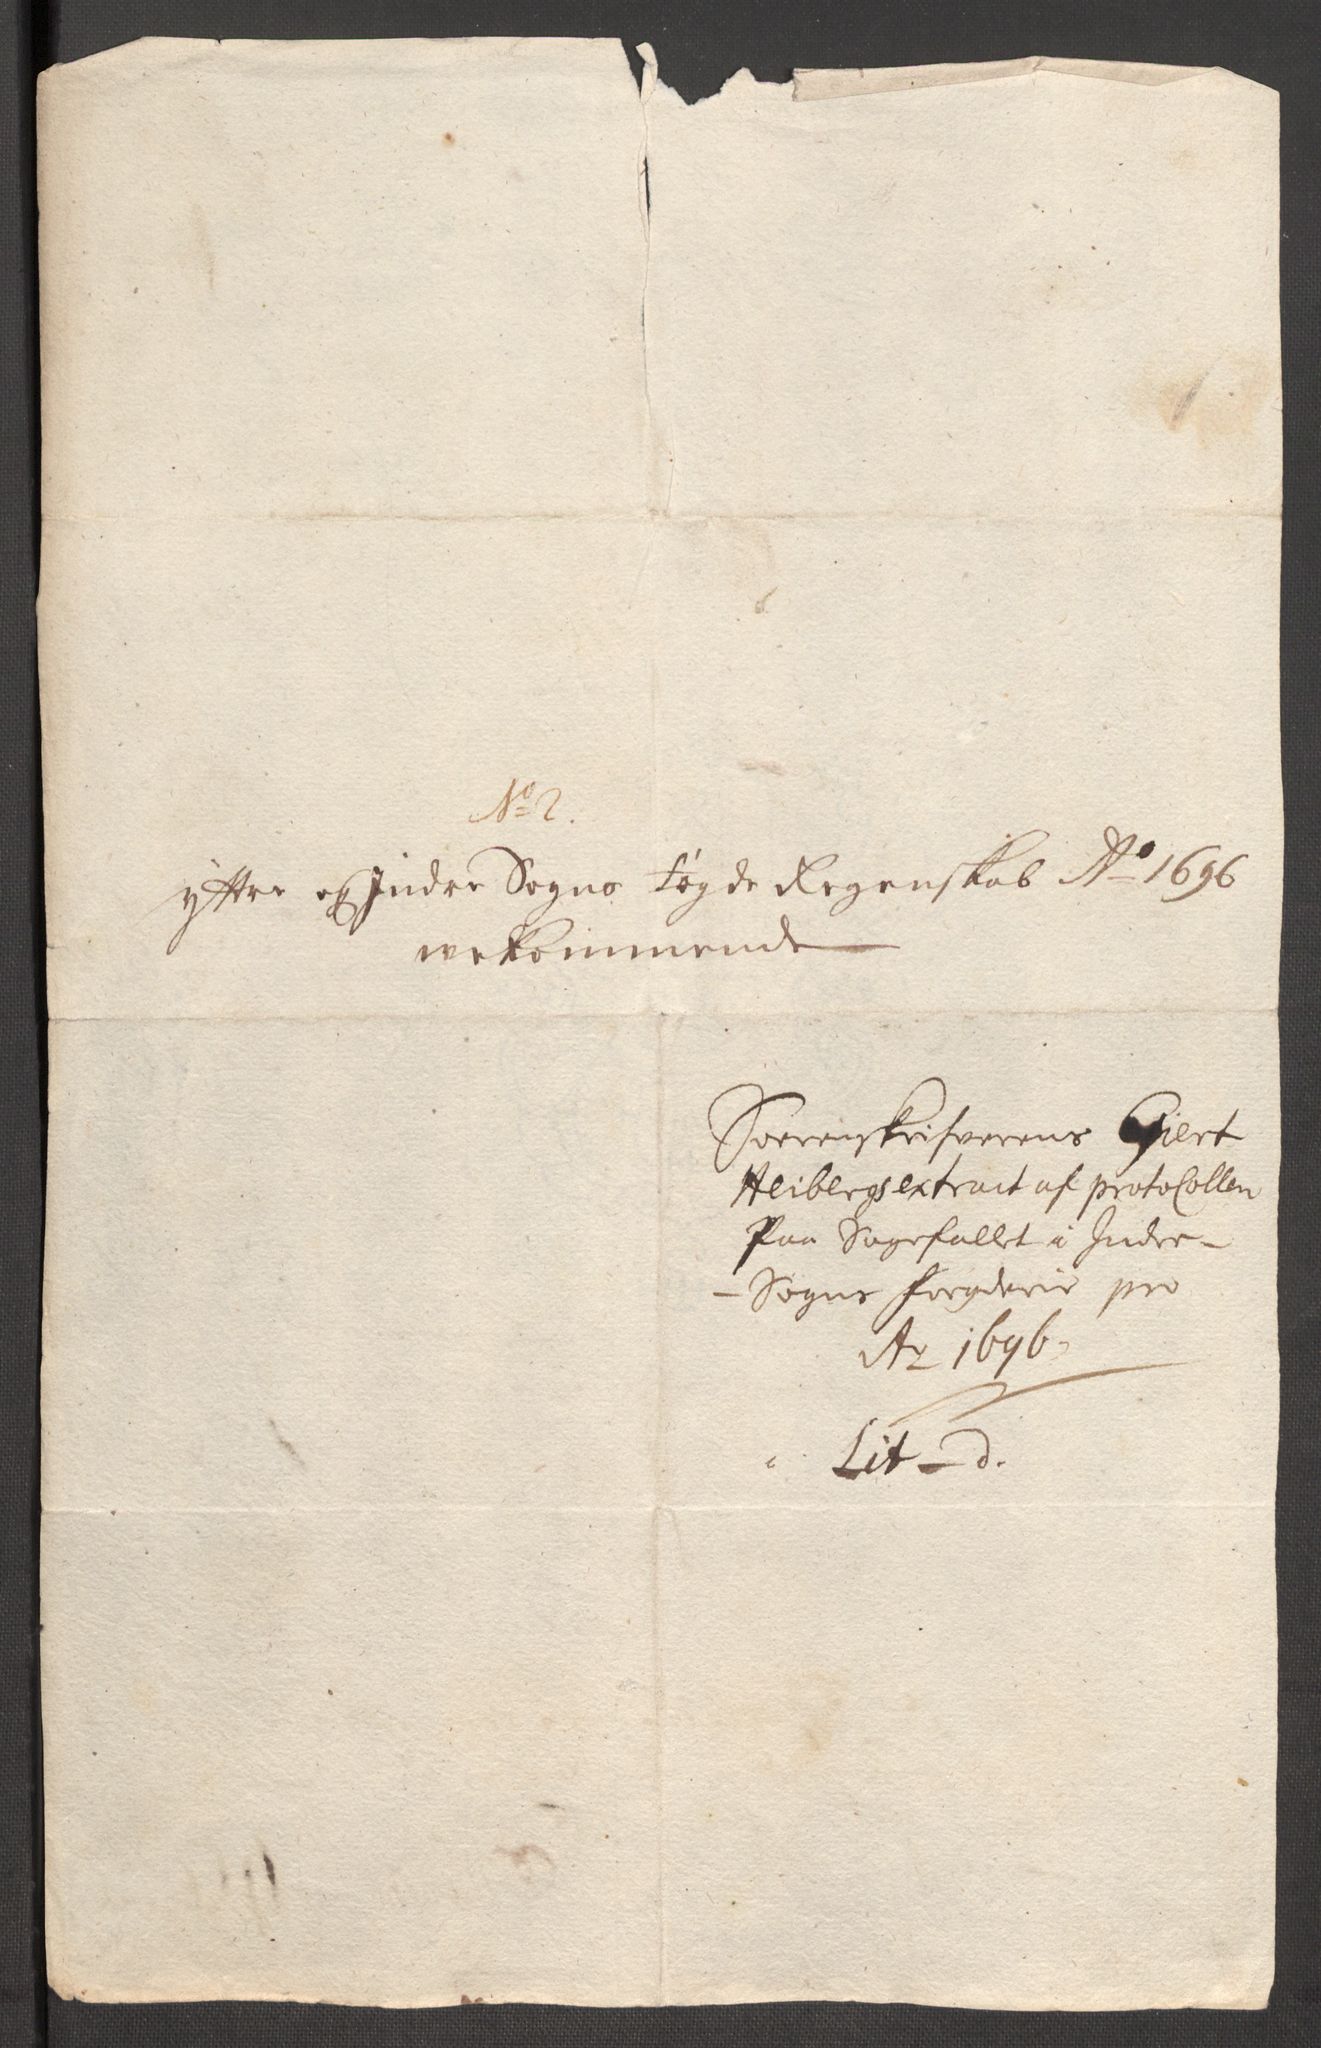 No 2.
yttre og Indre Sogns fógde Regenskab Ao 1696
vekommende
Sorenskrifverens Giert
Heibergs extract af protocollen
Paa Sagefallet i Inder-
- Sogns fogderie pro
Ao 1696
Lit - d.